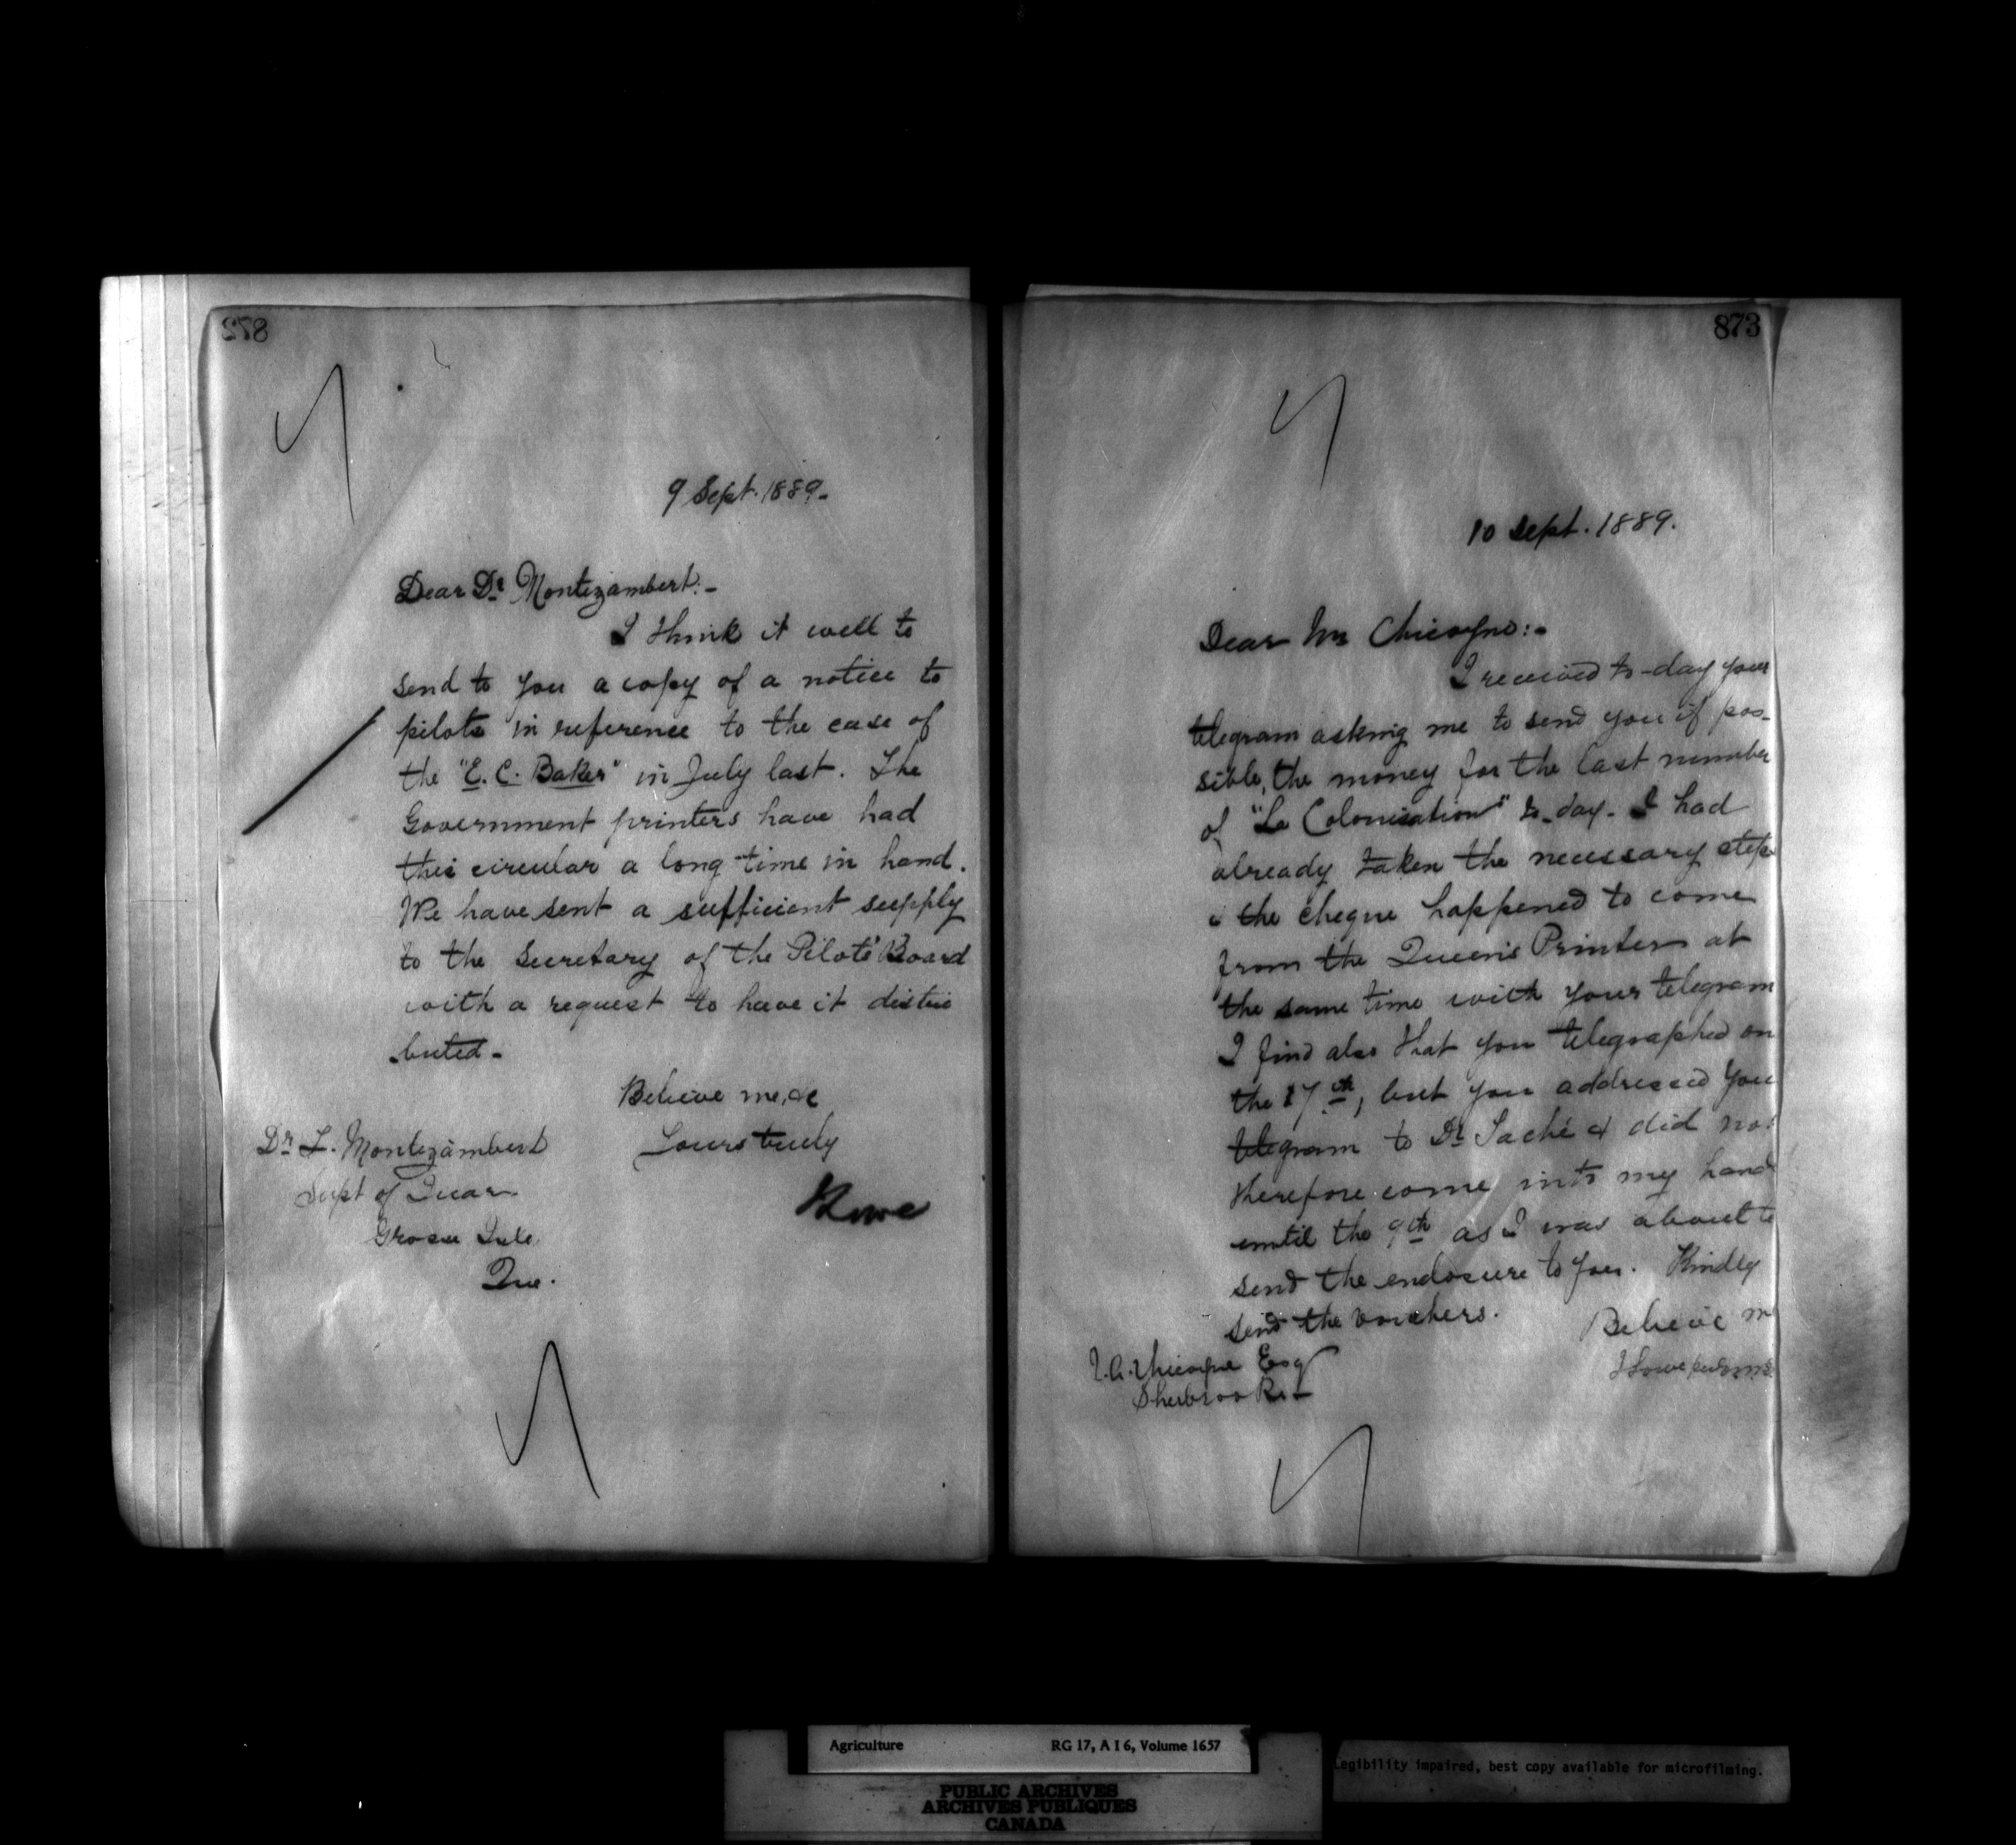 872
9 Sept. 1889.
Dear Dr Montizambert:-
I think it well to
send to you a copy of a notice to
pilots in reference to the case of
the "E. C. Baker" in July last. The
Government printers have had
this circular a long time in hand.
We have sent a sufficient supply
to the Secretary of the Pilots' Board
with a request to have it distri
buted.
Believe me, &c
Yours truly
Lowe
Dr F. Montizambert
Supt of Quar.
Grosse Isle
Que.
873
10 Sept. 1889.
Dear Mr Chicoyne:-
I received to-day your
telegram asking me to send you if pos-
sible, the money for the last number
of "La Colonisation" to-day. I had
already taken the necessary steps
& the cheque happened to come
from the Queen's Printer at
the same time with your telegram
I find also that you telegraphed on
the 17th, but you addressed you
telegram to Dr Taché & did not
therefore come into my hand
until the 9th as I was about to
send the enclosure to you. Kindly
send the vouchers.
Believe m
J. A. Chicoyne Esq
Sherbrooke
J Lowe
Agriculture RG 17, A I 6, Volume 1657
PUBLIC ARCHIVES
ARCHIVES PUBLIQUES
CANADA
Legibility impaired, best copy available for microfilming.